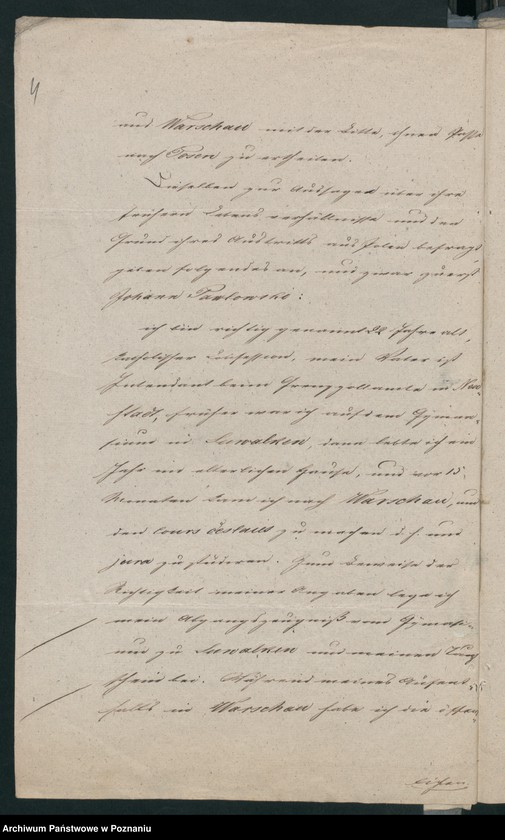 4
aus Warschau mit der Bitte, ihnen Pässe
nach Posen zu ertheilen.
Dieselben zur Aussage über ihre
frühern Lebensverhältnisse und den
Grund ihres Austritts aus Polen befragt
geben folgendes an, und zwar zuerst
Johann Pawlowski:
ich bin richtig genannt 22 Jahre alt,
katholischer Confession, mein Vater ist
Intendant beim Grenzzollamte in Neu-
stadt, früher war ich auf dem Gymna-
sium in Suwalken, dann lebte ich ein
Jahr im elterlichen Hause, und vor 15
Monaten kam ich nach Warschau, um
den cours zu machen d. h. um
jura zu studieren. Zum Beweise der
Richtigkeit meiner Angaben lege ich
mein Abgangszeugniß vom Gymnasi-
um zu Suwalken und meinen Tauf
schein bei. Während meines Aufent-
halts in Warschau habe ich die
Archiwum Państwowe w Poznaniu